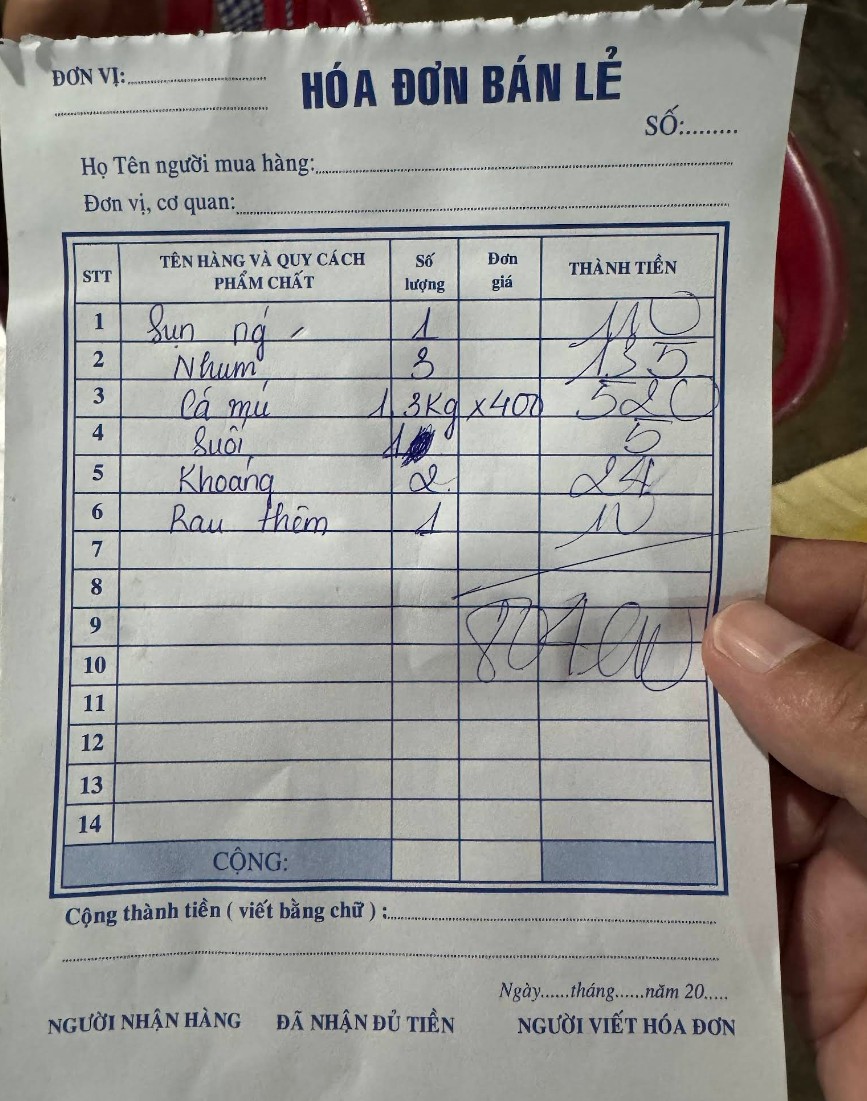 ĐƠN VỊ:
HÓA ĐƠN BÁN LẺ
SỐ:
Họ Tên người mua hàng:
Đơn vị, cơ quan:
STT TÊN HÀNG VÀ QUY CÁCH PHẨM CHẤT Số lượng Đơn giá THÀNH TIỀN
1 Sụn ng 1 110
2 Nhum 3 135
3 Cá mú 1,3kg x400 520
4 Suối 1 5
5 Khoáng 2 24
6 Rau thêm 1 10
7
8
9 804.000
10
11
12
13
14
CỘNG:
Cộng thành tiền ( viết bằng chữ ) :
Ngày......tháng......năm 20.....
NGƯỜI NHẬN HÀNG ĐÃ NHẬN ĐỦ TIỀN NGƯỜI VIẾT HÓA ĐƠN